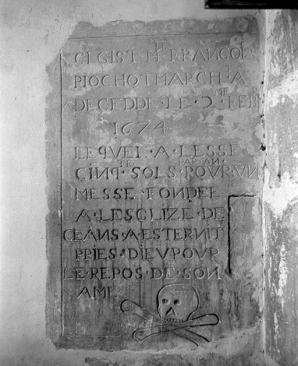 CI GIST Mre FRANCOIS
PIOCHOT MARCHA
DECEDDE LE 2 FEB
1674
LEQUEL A LESSE
CINQ SOLS POUR UN
MESSE FONDEE
A LESGLIZE DE
CEANS A ESTERNIT
PRIES DIEU POUR
LE REPOS DE SON
AME